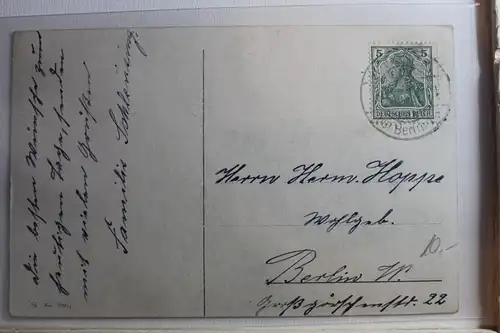 Die besten Wünsche zum
heutigen Tage, senden
mit vielen Grüßen
Familie
5 5
DEUTSCHES REICH
Herrn Herm. Hoppe
Wohlgeb.
Berlin W.
Großgörschenstr. 22
10.-